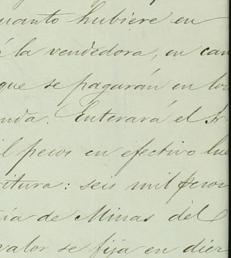 uanto hubiere en
á la vendedora, en can
que se pagarán en los
nda. Enterará el Sr
il pesos en efectivo lue
ritura: seis mil pesos
ía de Minas del
valor se fija en diez